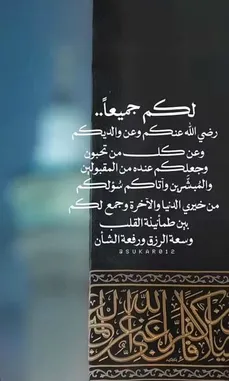 لكم جميعاً..
رضي الله عنكم وعن والديكم
وعن كل من تحبون
وجعلكم عنده من المقبولين
والمُبشّرين وآتاكم سُؤلكم
من خيري الدنيا والآخرة وجمع لكم
بين طمأنينة القلب
وسعة الرزق ورفعة الشأن
@SUKAR012